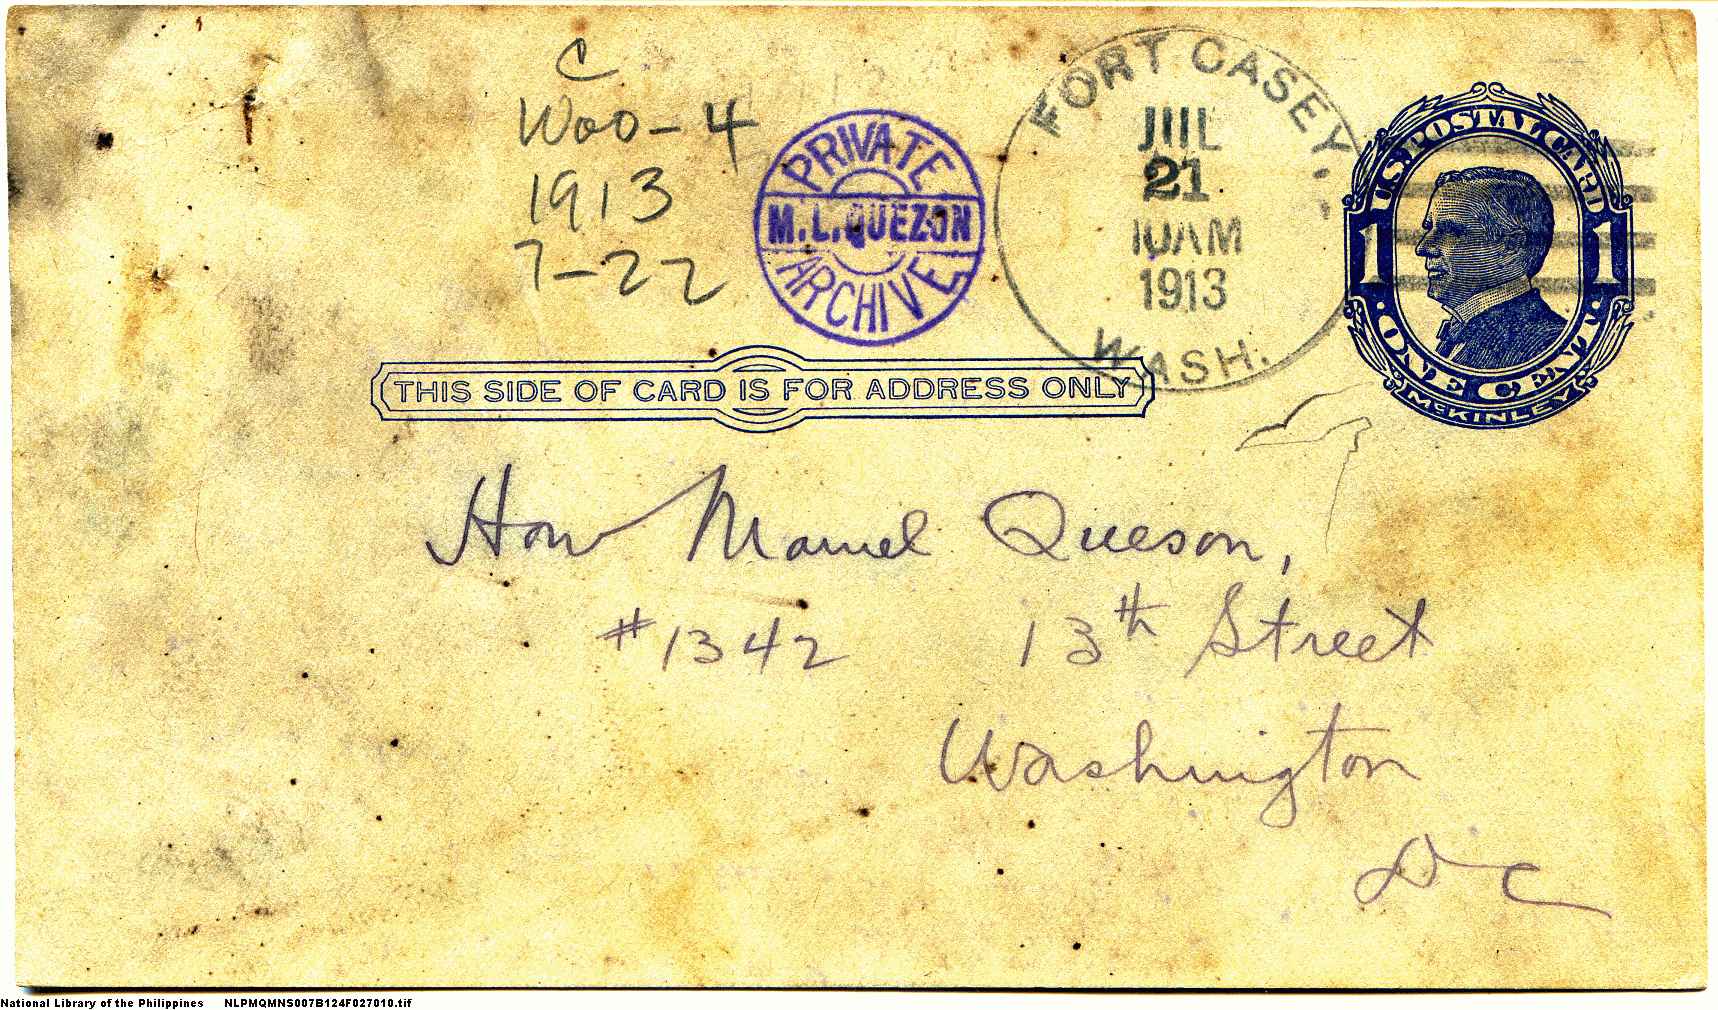 C
Woo-4
1913
7-22
PRIVATE
M.L.QUEZON
ARCHIVE
FORT CASEY
JUL
21
10AM
1913
WASH.
U.S. POSTAL CARD
1 1
·ONE CENT·
McKINLEY
THIS SIDE OF CARD IS FOR ADDRESS ONLY
Hon Manuel Queson,
#1342 13th Street
Washington
DC
National Library of the Philippines NLPMQMNS007B124F027010.tif